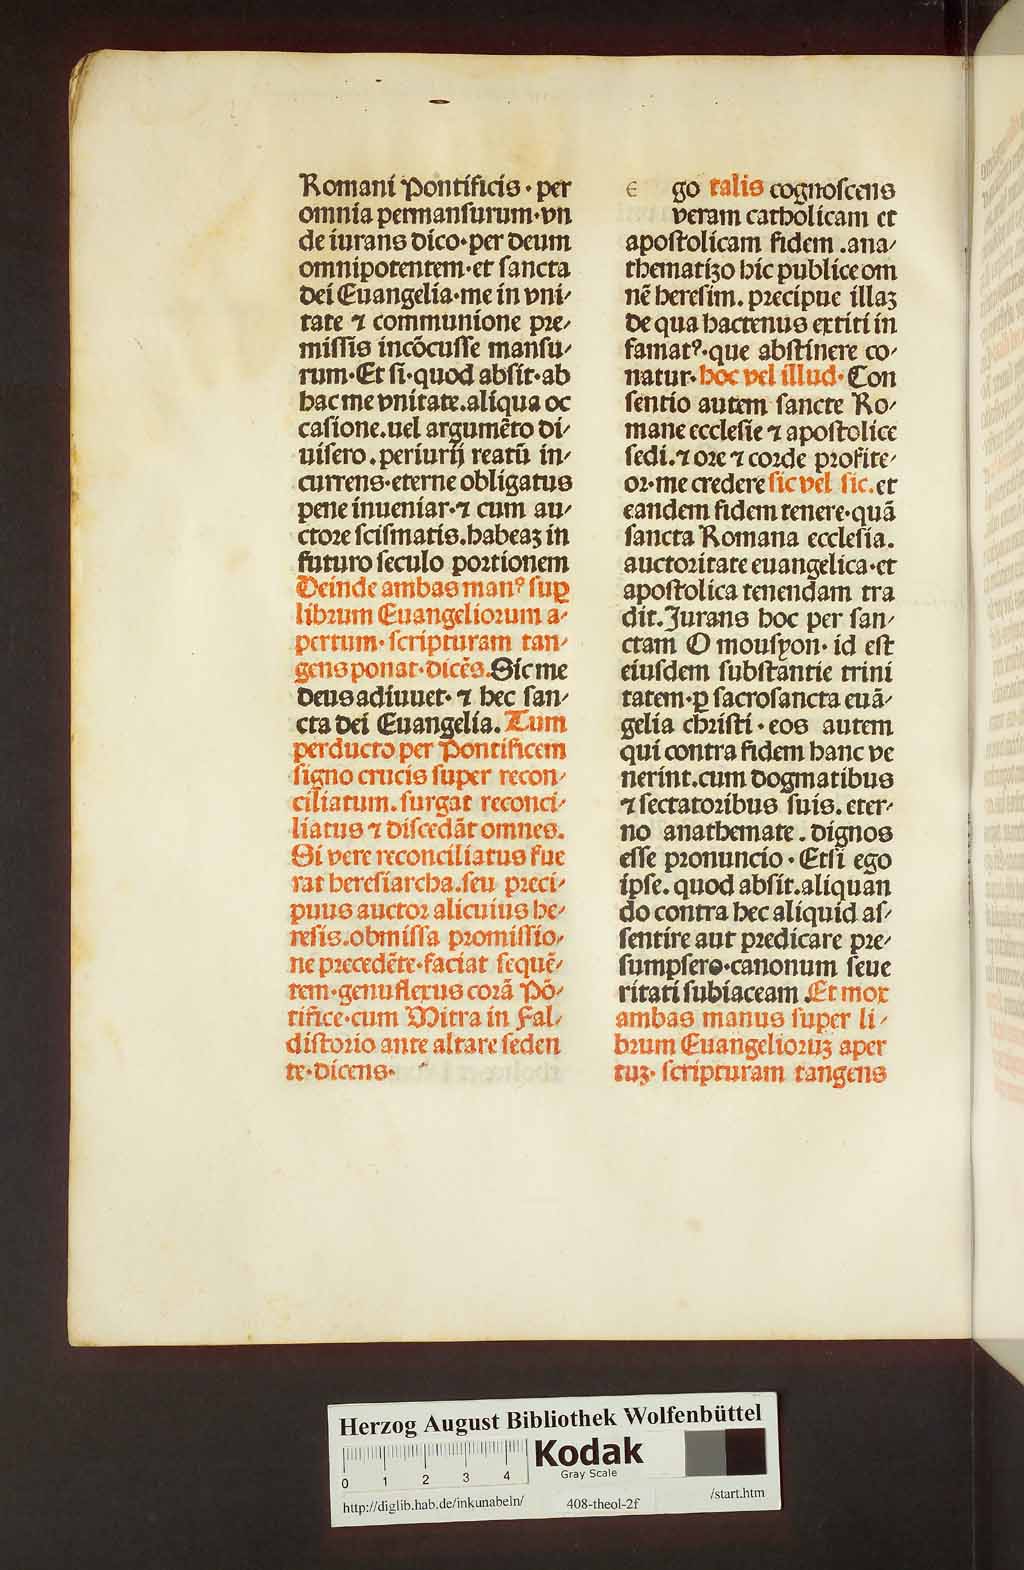 Romani Pontificis · per
omnia permanſurum · vn
de iurans dico · per deum
omnipotentem · et ſancta
dei Euangelia · me in vni⸗
tate ⁊ communione pre⸗
miſſis incōcuſſe manſu⸗
rum · Et ſi · quod abſit · ab
hac me vnitate . aliqua oc
caſione . uel argumēto di⸗
uiſero . periurij reatū in⸗
currens · eterne obligatus
pene inueniar · ⁊ cum au⸗
ctore ſciſmatis . habeaꝫ in
futuro ſeculo portionem
Deinde ambas manꝰ ſuꝑ
librum Euangeliorum a⸗
pertum · ſcripturam tan⸗
gens ponat · dicēs . Sic me
deus adiuuet · ⁊ hec ſan⸗
cta dei Euangelia . Tum
perducto per Pontificem
ſigno crucis ſuper recon⸗
ciliatum . ſurgat reconci⸗
liatus ⁊ diſcedāt omnes .
Si vere reconciliatus fue
rat hereſiarcha . ſeu preci⸗
puus auctor alicuius he⸗
reſis . obmiſſa promiſſio⸗
ne precedēte · faciat ſequē⸗
tem · genuflexus corā Pō⸗
tifice · cum Mitra in Fal⸗
diſtorio ante altare ſeden
te · dicens ·
e go talis cognoſcens
veram catholicam et
apoſtolicam fidem . ana⸗
thematizo hic publice om
nē hereſim . precipue illaꝫ
de qua hactenus extiti in
famatꝰ · que abſtinere co⸗
natur · hoc vel illud · Con
ſentio autem ſancte Ro⸗
mane eccleſie ⁊ apoſtolice
ſedi . ⁊ ore ⁊ corde profite⸗
or · me credere ſic vel ſic . et
eandem fidem tenere · quā
ſancta Romana eccleſia .
auctoritate euangelica · et
apoſtolica tenendam tra
dit . Jurans hoc per ſan⸗
ctam O mouſyon · id eſt
eiuſdem ſubſtantie trini
tatem · ꝑ ſacroſancta euā⸗
gelia chriſti · eos autem
qui contra fidem hanc ve
nerint . cum dogmatibus
⁊ ſectatoribus ſuis . eter⸗
no anathemate . dignos
eſſe pronuncio · Etſi ego
ipſe . quod abſit . aliquan
do contra hec aliquid aſ⸗
ſentire aut predicare pre⸗
ſumpſero · canonum ſeue
ritati ſubiaceam . Et mox
ambas manus ſuper li⸗
brum Euangelioruꝫ aper
tuꝫ · ſcripturam tangens
Herzog August Bibliothek Wolfenbüttel
Kodak
Gray Scale
0 1 2 3 4
http://diglib.hab.de/inkunabeln/ 408-theol-2f /start.htm